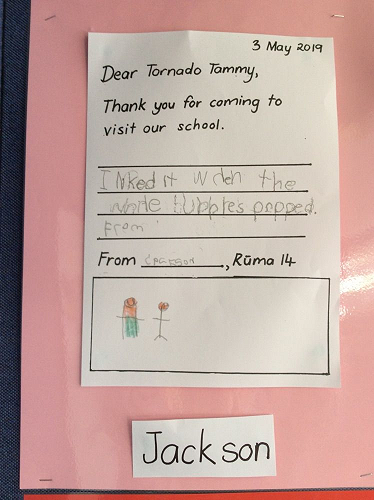 3 May 2019
Dear Tornado Tammy,
Thank you for coming to
visit our school.
I liked it wden the
wite bubbles popped.
From
From Jackson, Rūma 14
Jackson